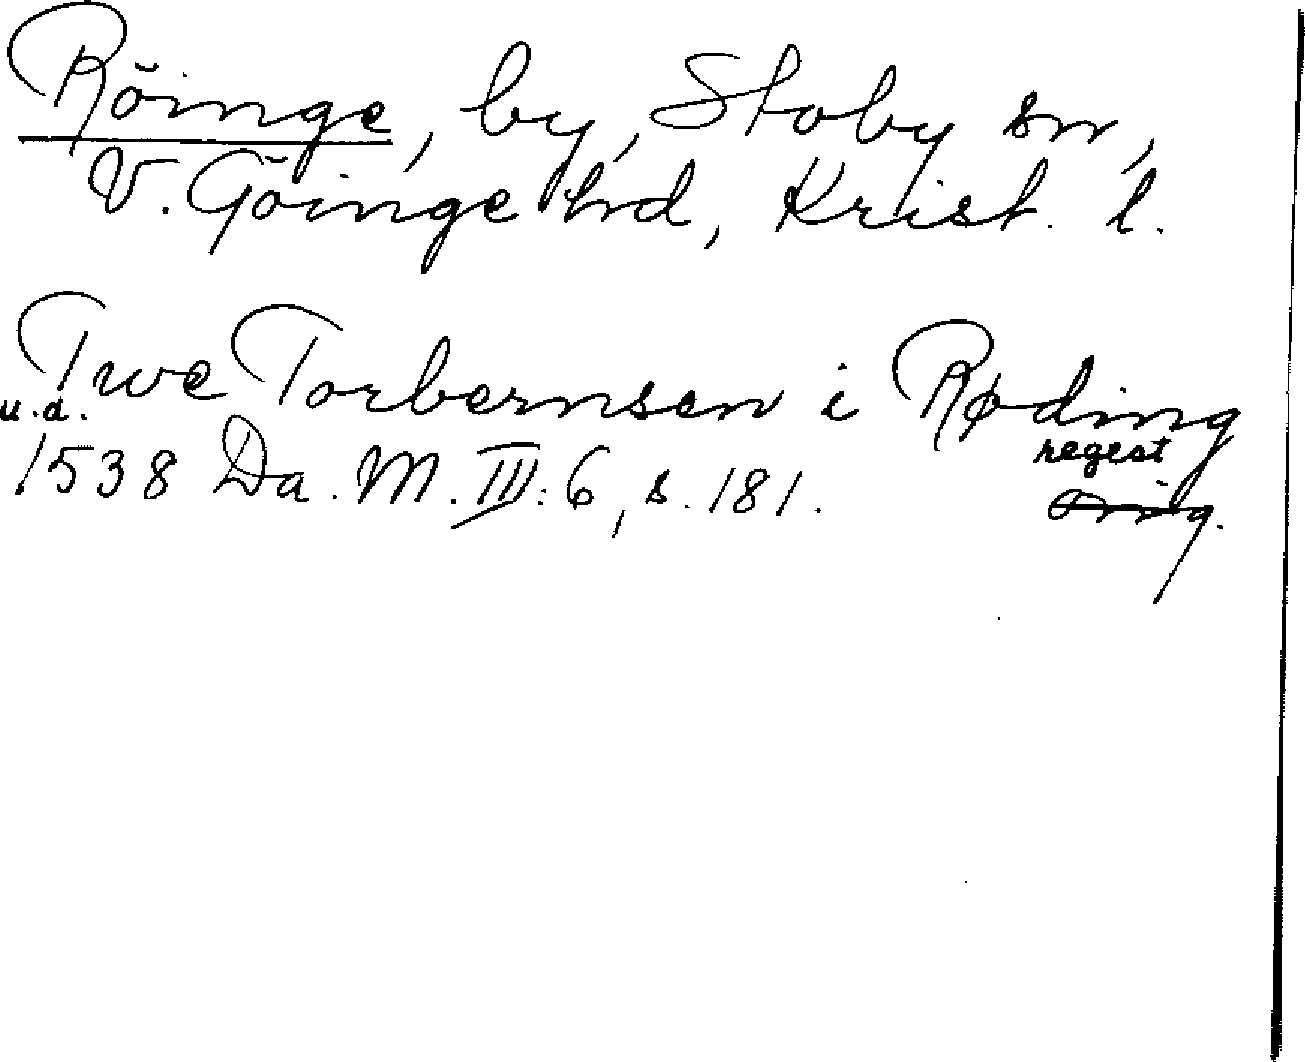 Röinge, by, Stoby sn,
V. Göinge hd, Krist. l.
Twe Torbernsen i Røding
u.d.
1538 Da. M. III: 6, s. 181.
regest
orig.